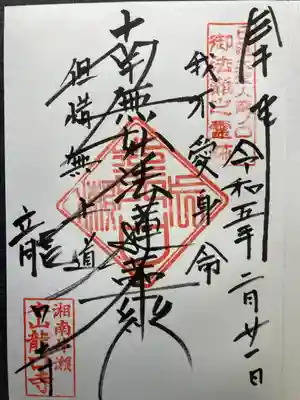 日蓮大聖人龍ノ口
御法難之霊跡
令和五年二月廿一日
我不愛身命
南無妙法蓮華経
但惜無上道
龍口寺
湘南片瀬
龍口寺